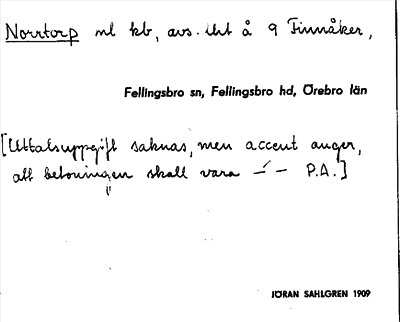 Norrtorp nl kb, avs. lht å 9 Finnåker,
Fellingsbro sn, Fellingsbro hd, Örebro län
[Uttalsuppgift saknas, men accent anger,
att betoningen skall vara –́ – P.A.]
JÖRAN SAHLGREN 1909